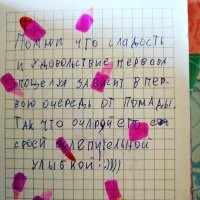 Помни что сладость
и удовольствие первого
поцелуя зависит в пер-
вую очередь от помады.
Так что очаруй его
своей ослепительной
улыбкой!:))))